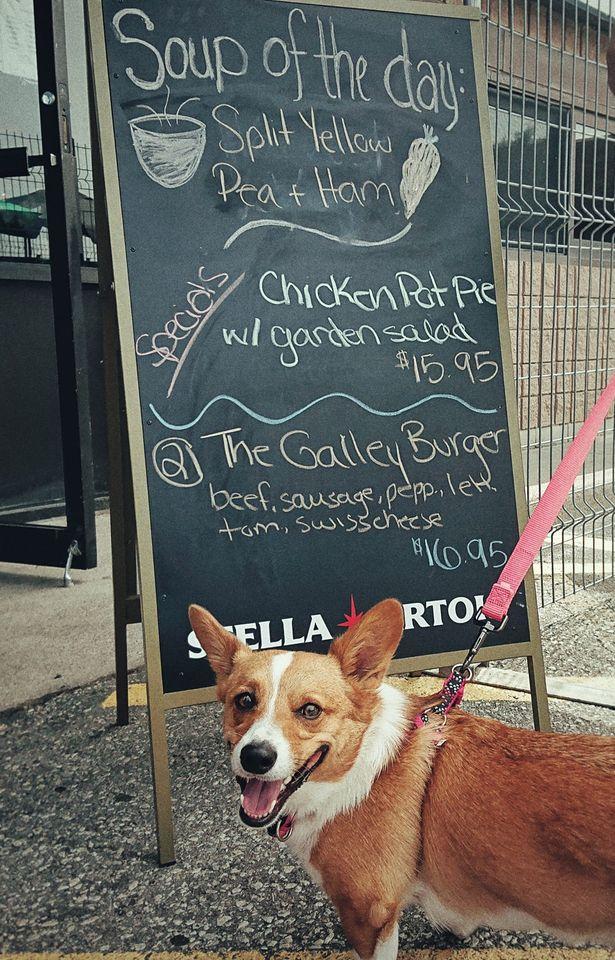 Soup of the day:
Split Yellow
Pea + Ham
Specials
Chicken Pot Pie
w/ garden salad
$15.95
2) The Galley Burger
beef, sausage, pepp., lett.
tom., swiss cheese
$16.95
STELLA ARTOIS